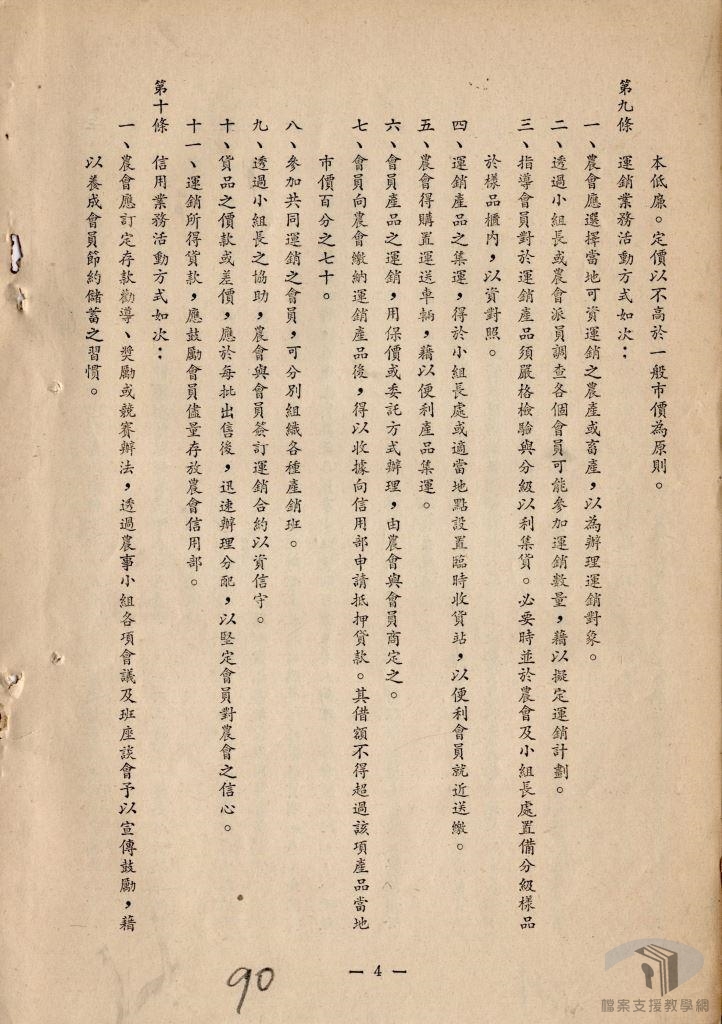 本低廉。定價以不高於一般市價為原則。
第九條　運銷業務活動方式如次：
一、農會應選擇當地可資運銷之農產或畜產，以為辦理運銷對象。
二、透過小組長或農會派員調查各個會員可能參加運銷數量，藉以擬定運銷計劃。
三、指導會員對於運銷產品須嚴格檢驗與分級以利集貨。必要時並於農會及小組長處置備分級樣品
於樣品櫃內，以資對照。
四、運銷產品之集運，得於小組長處或適當地點設置臨時收貨站，以便利會員就近送繳。
五、農會得購置運送車輛，藉以便利產品集運。
六、會員產品之運銷，用保價或委託方式辦理，由農會與會員商定之。
七、會員向農會繳納運銷產品後，得以收據向信用部申請抵押貸款。其借額不得超過該項產品當地
市價百分之七十。
八、參加共同運銷之會員，可分別組織各種產銷班。
九、透過小組長之協助，農會與會員簽訂運銷合約以資信守。
十、貨品之價款或差價，應於每批出售後，迅速辦理分配，以堅定會員對農會之信心。
十一、運銷所得貨款，應鼓勵會員儘量存放農會信用部。
第十條　信用業務活動方式如次：
一、農會應訂定存款勸導、獎勵或競賽辦法，透過農事小組各項會議及班座談會予以宣傳鼓勵，藉
以養成會員節約儲蓄之習慣。
— 4 —
90
檔案支援教學網